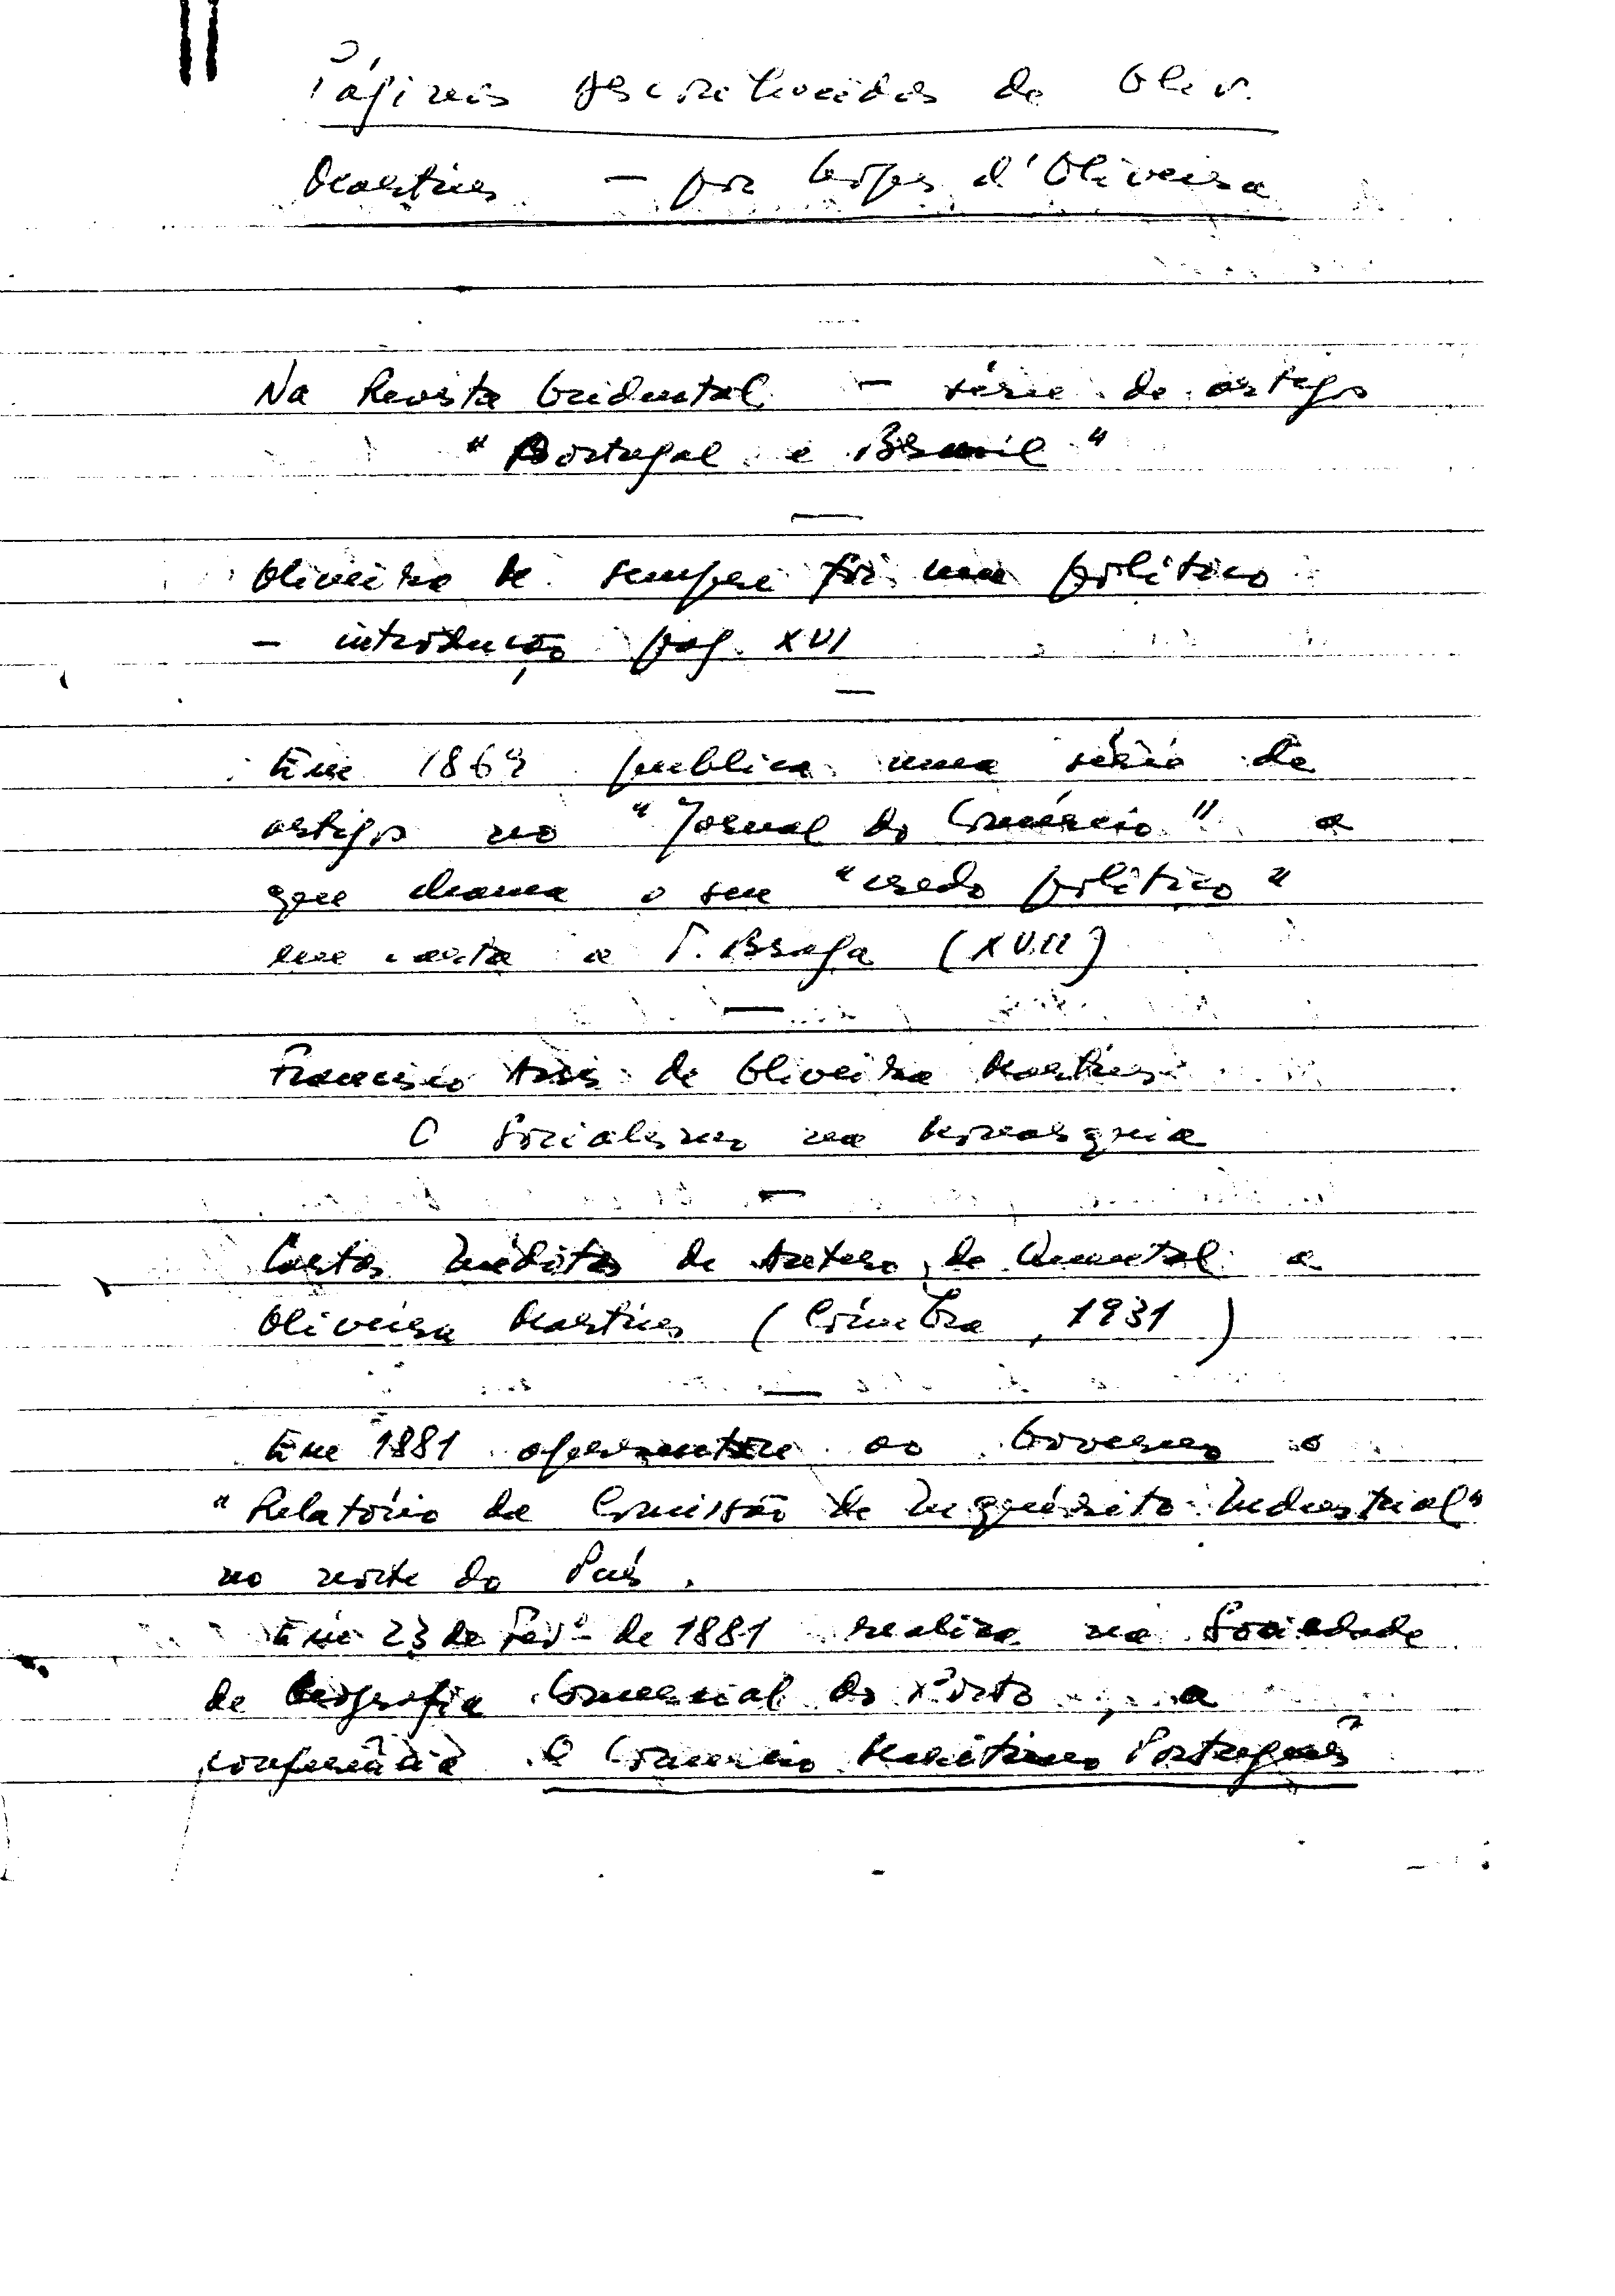 Páginas desconhecidas de Oliv.
Martins – por Lopes d'Oliveira
Na Revista Ocidental – série de artigos
"Portugal e Brasil"
Oliveira M. sempre foi um político
– introdução pag. XVI
Em 1869 publica uma série de
artigos no "Jornal do Comércio" a
que chama o seu "credo político"
em carta a T. Braga (XVII)
Francisco Assis de Oliveira Martins
O Socialismo na Monarquia
Cartas Inéditas de Antero de Quental a
Oliveira Martins (Coimbra, 1931)
Em 1881 apresentou ao Governo o
"Relatório da Comissão de Inquérito Industrial"
no norte do País.
Em 23 de Fevº de 1881 realiza na Sociedade
de Geografia Comercial do Porto, a
conferência O Comércio Marítimo Português